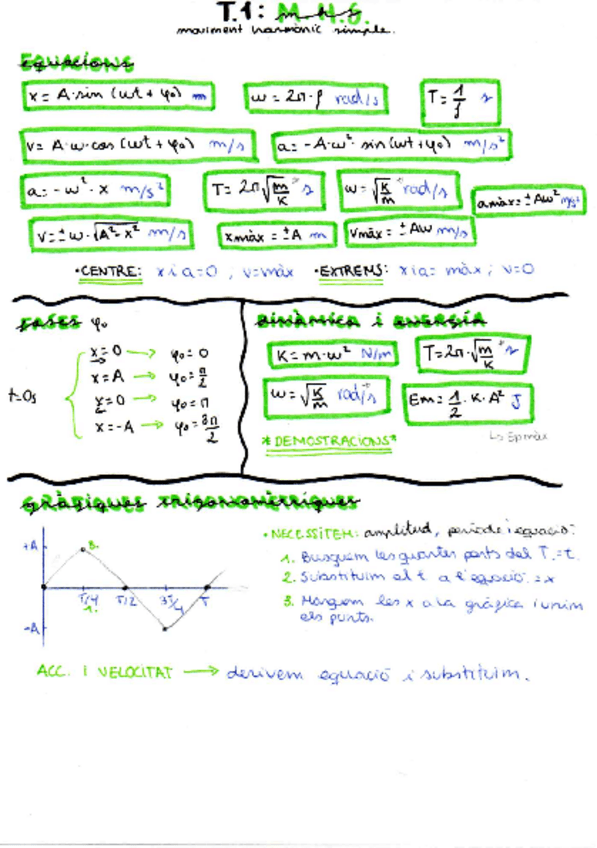 T.1: M.H.S.
moviment harmònic simple.
equacions
x = A·sin (ωt + φ₀) m
ω = 2π·f rad/s
T = 1/f s
v = A·ω·cos (ωt + φ₀) m/s
a = -A·ω²·sin (ωt + φ₀) m/s²
a = -ω²·x m/s²
T = 2π√(m/K) s
ω = √(K/m) rad/s
amàx = ±Aω² m/s²
v = ±ω·√(A²-x²) m/s
xmàx = ±A m
vmàx = ±Aω m/s
·CENTRE: x i a = 0 , v = màx ·EXTREMS: x i a = màx ; v = 0
FASES φ₀
t=0s
x = 0 → φ₀ = 0
x = A → φ₀ = π/2
x = 0 → φ₀ = π
x = -A → φ₀ = 3π/2
Dinàmica i energía
K = m·ω² N/m
T = 2π·√(m/K) s
ω = √(K/m) rad/s
Em = 1/2·K·A² J
*DEMOSTRACIONS*
Ls Ep màx
gràfiques trigonomètriques
+A
3.
T/4 T/2 3T/4 T
1.
-A
·NECESSITEM: amplitud, període i equació:
1. Busquem les quartes parts del T. = t.
2. Substituim el t a l'equació. = x
3. Marquem les x a la gràfica i unim
els punts.
ACC. I VELOCITAT → derivem equació i substituim.